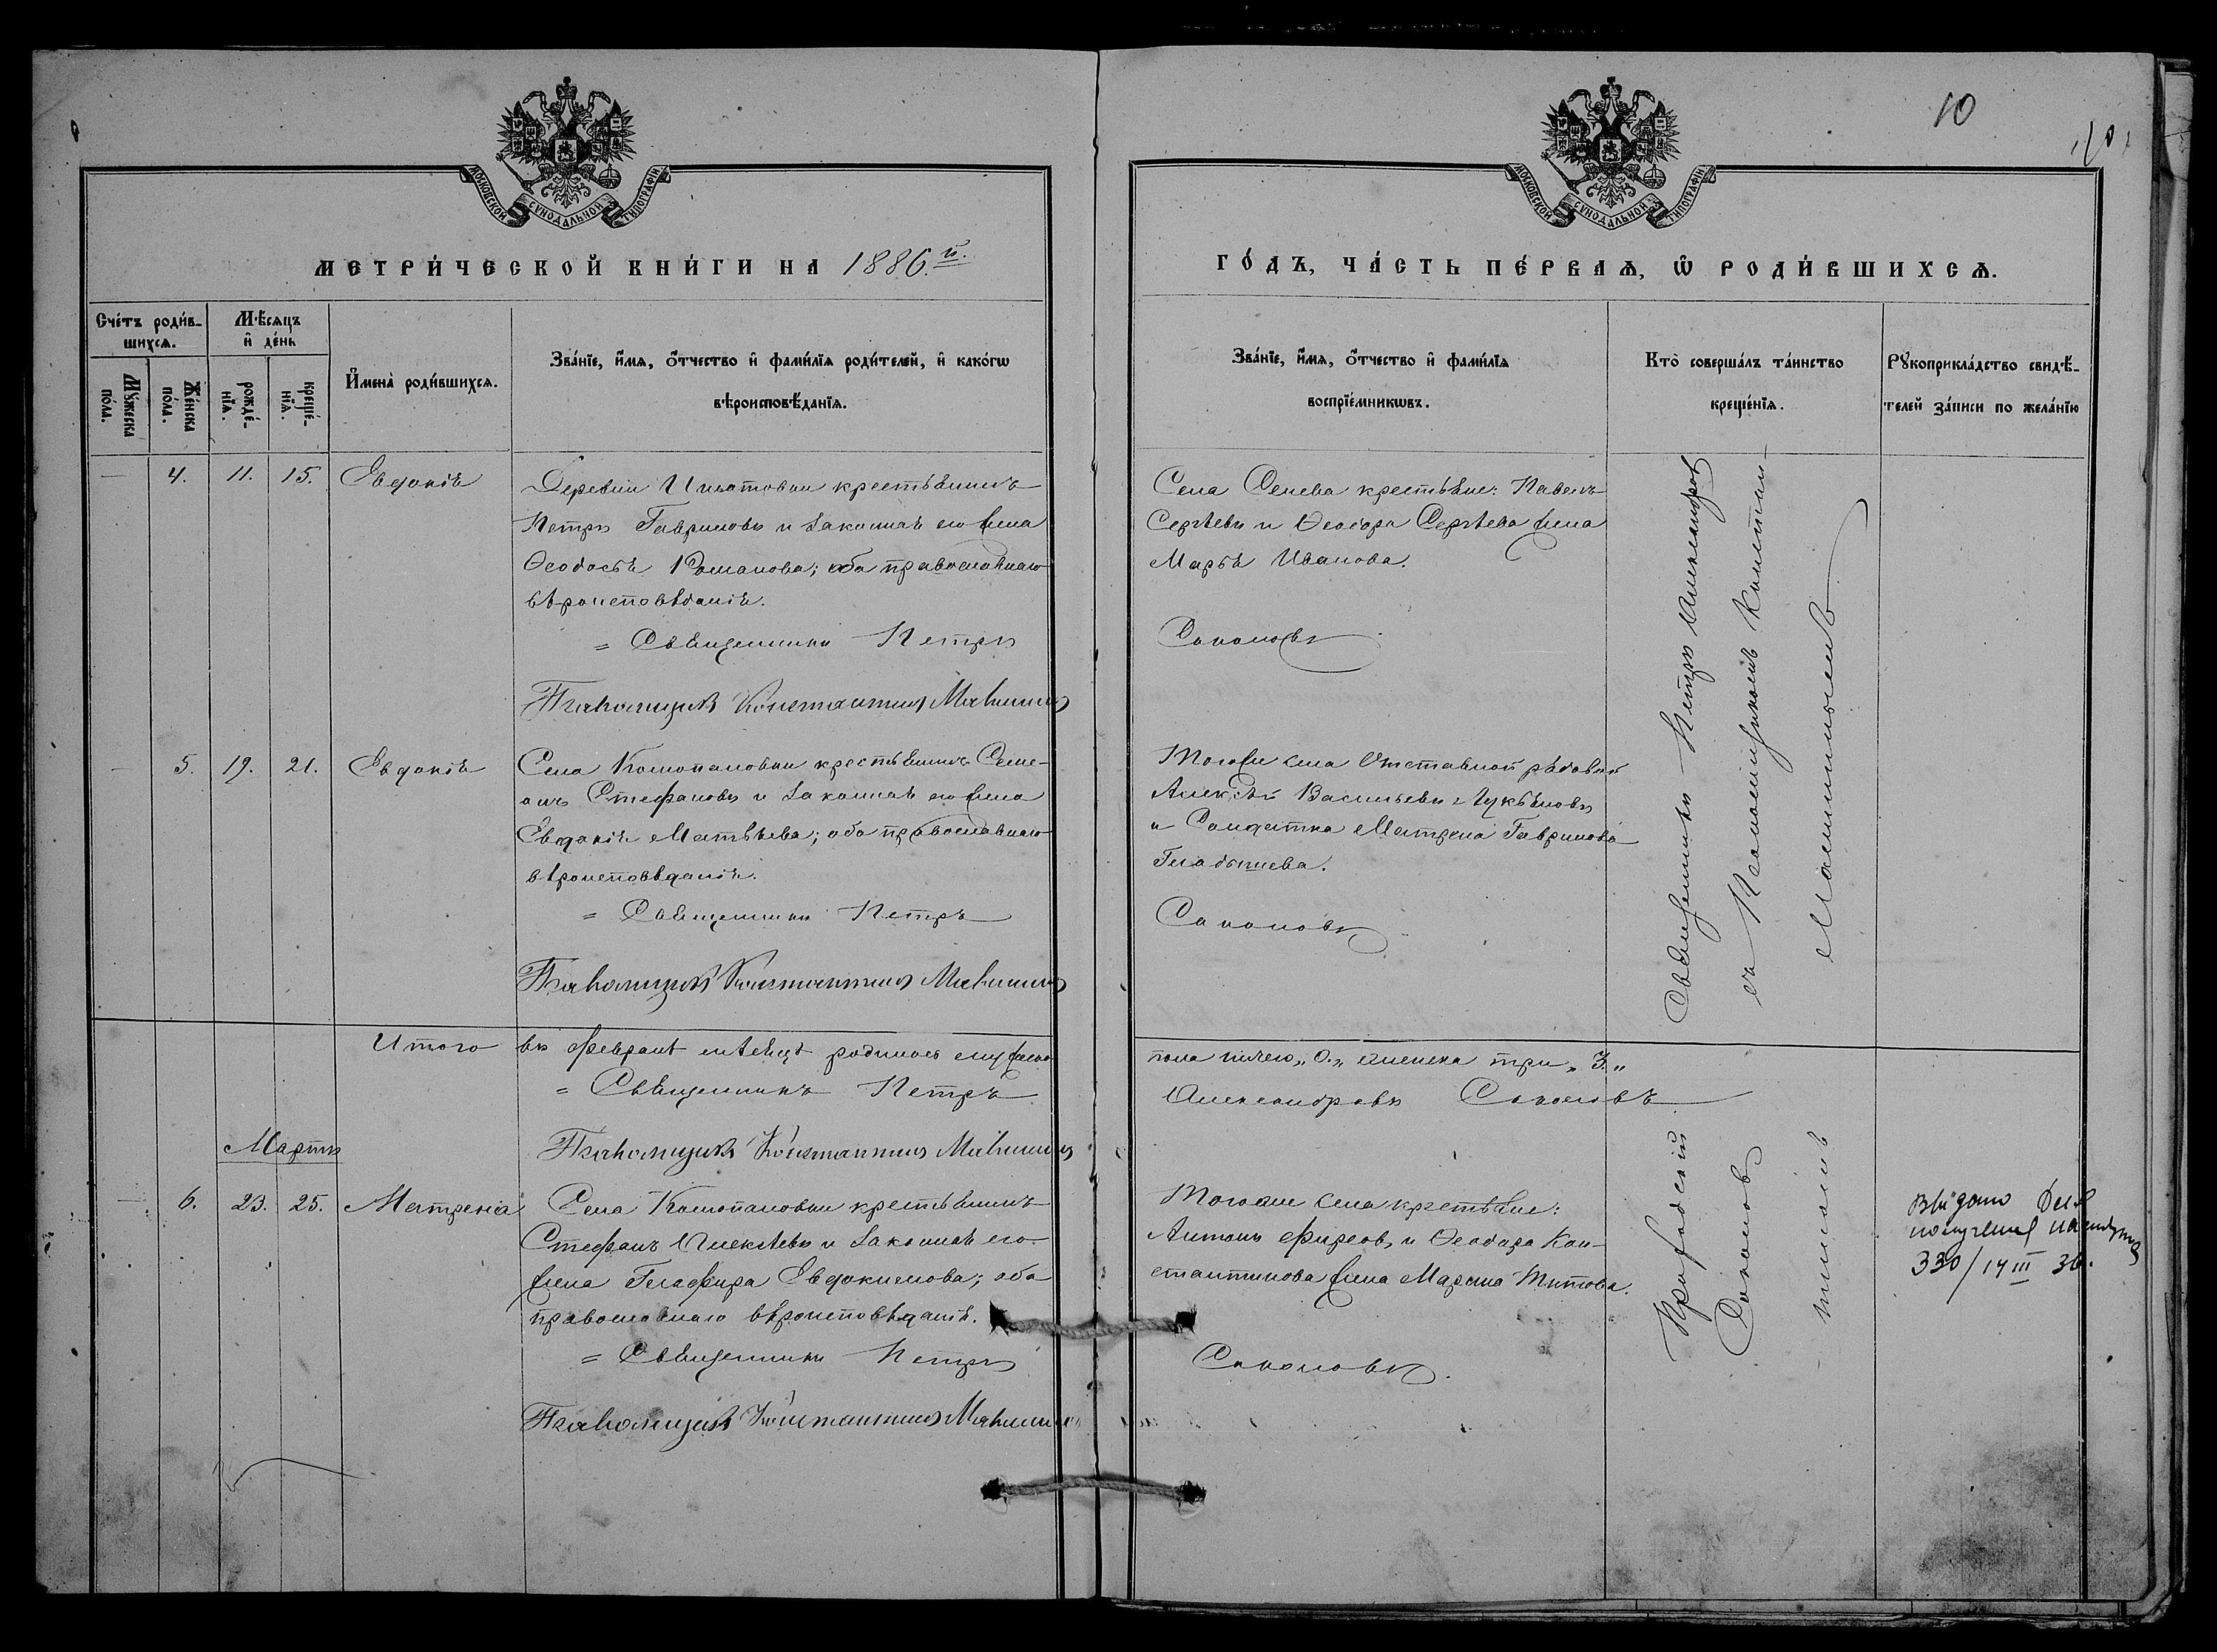 10
МОСКОВСКОЙ СѴНОДАЛЬНОЙ ТИПОГРАФІИ
МОСКОВСКОЙ СѴНОДАЛЬНОЙ ТИПОГРАФІИ
МЕТРИ́ЧЕСКОЙ КНИ́ГИ НА 1886.й
ГО́ДЪ, ЧА́СТЬ ПЕ́РВАѦ, Ѡ҆ РОДИ́ВШИХСѦ.
Сче́тъ роди́в-
шихсѧ.
Мꙋ́жеска
по́ла.
Же́нска
по́ла.
Мѣ́сѧцъ
и҆ де́нь
рожде́-
нїѧ.
креще́-
нїѧ.
И҆мена̀ роди́вшихсѧ.
Зва́нїе, и҆́мѧ, ѻ҆́тчество и҆ фамѝлїѧ роди́телей, и҆ како́гѡ
вѣроисповѣ́данїѧ.
Зва́нїе, и҆́мѧ, ѻ҆́тчество и҆ фамѝлїѧ
воспрїе́мникѡвъ.
Кто̀ соверша́лъ та́инство
креще́нїѧ.
Рꙋкоприкла́дство свидѣ́-
телей за́писи по жела́нїю
— 4. 11. 15. Евдокія
Деревни Игнатовки крестьянинъ
Петръ Гавриловъ и законная его жена
Ѳеодосія Романова; оба православнаго
вѣроисповѣданія.
= Священникъ Петръ
Псаломщикъ Константинъ
Села Сенева крестьяне: Павелъ
Сергѣевъ и Ѳеодора Сергѣева жена
Марья Иванова.
Соколовъ
Священникъ Петръ Александровъ
съ Псаломщикомъ Константи-
— 5. 19. 21. Евдокія
Села Колопановки крестьянинъ Симе-
онъ Стефановъ и законная его жена
Евдокія Матвѣева; оба православнаго
вѣроисповѣданія.
= Священникъ Петръ
Псаломщикъ Константинъ
Тогоже села отставной рядовой
Алексѣй Васильевъ Лукьяновъ
и солдатка Матрена Гаврилова
Гладышева.
Соколовъ
Итого въ Февралѣ мѣсяцѣ родилось мужеска
= Священникъ Петръ
Псаломщикъ Константинъ
пола ничего „0.„ женска три „3.„
Александровъ Соколовъ
Мартъ
— 6. 23. 25. Матрена
Села Колопановки крестьянинъ
Стефанъ Алексѣевъ и законная его
жена Глафира Евдокимова; оба
православнаго вѣроисповѣданія.
= Священникъ Петръ
Псаломщикъ Константинъ
Тогоже села крестьяне:
Антонъ Фирсовъ и Ѳеодора Кон-
стантинова жена Марина Титова.
Соколовъ.
Соколовъ
Выдано для
получения паспорта
330/14 III 36.